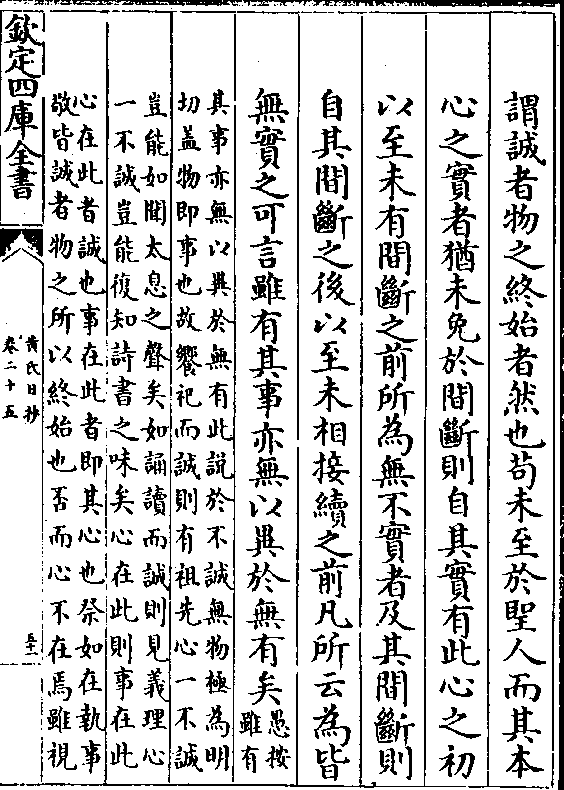 謂誠者物之終始者然也苟未至於聖人而其本
心之實者猶未免於間斷則自其實有此心之初
以至未有間斷之前所為無不實者及其間斷則
自其間斷之後以至未相接續之前凡所云為皆
無實之可言雖有其事亦無以異於無有矣愚按
雖有
其事亦無以異於無有此說於不誠無物極為明
切盖物即事也故饗祀而誠則有祖先心一不誠
豈能如聞太息之聲矣如誦讀而誠則見義理心
一不誠豈能復知詩書之味矣心在此則事在此
心在此者誠也事在此者即其心也祭如在執事
敬皆誠者物之所以終始也否而心不在焉雖視
欽定四庫全書
黃氏日抄
卷二十五
五十一